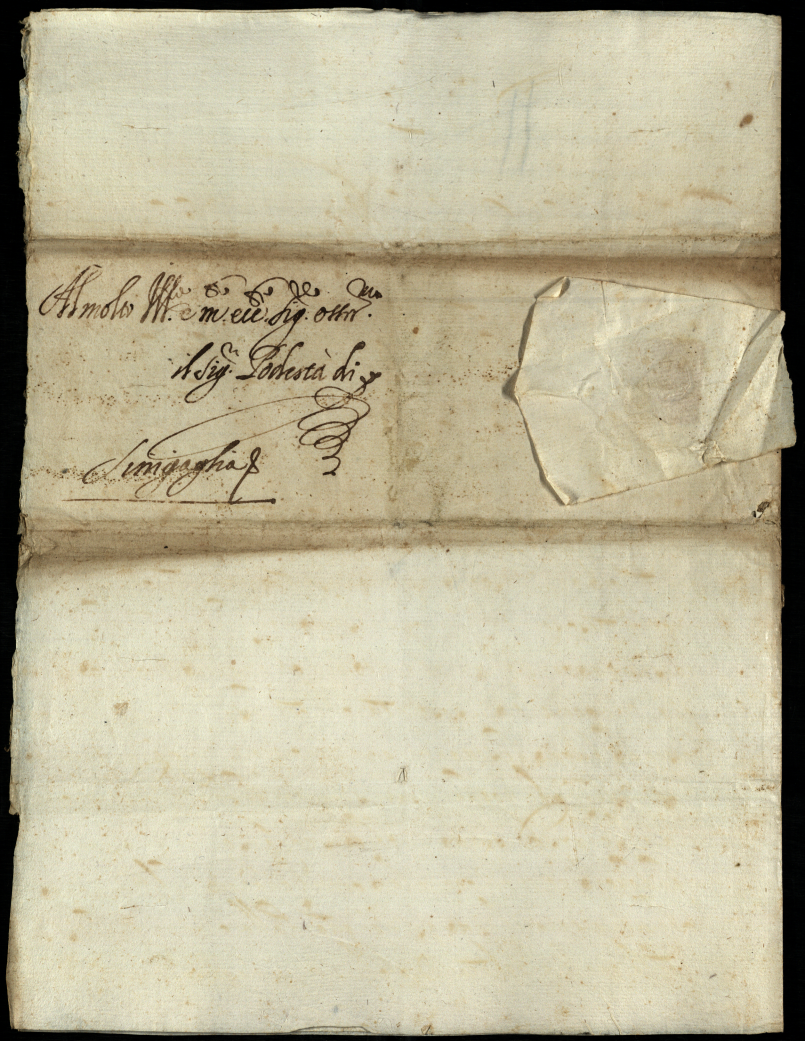 Al molto Ill.re e m. ecc.te Sig. oss.mo
il Sig.r Podestà di
Sinigaglia